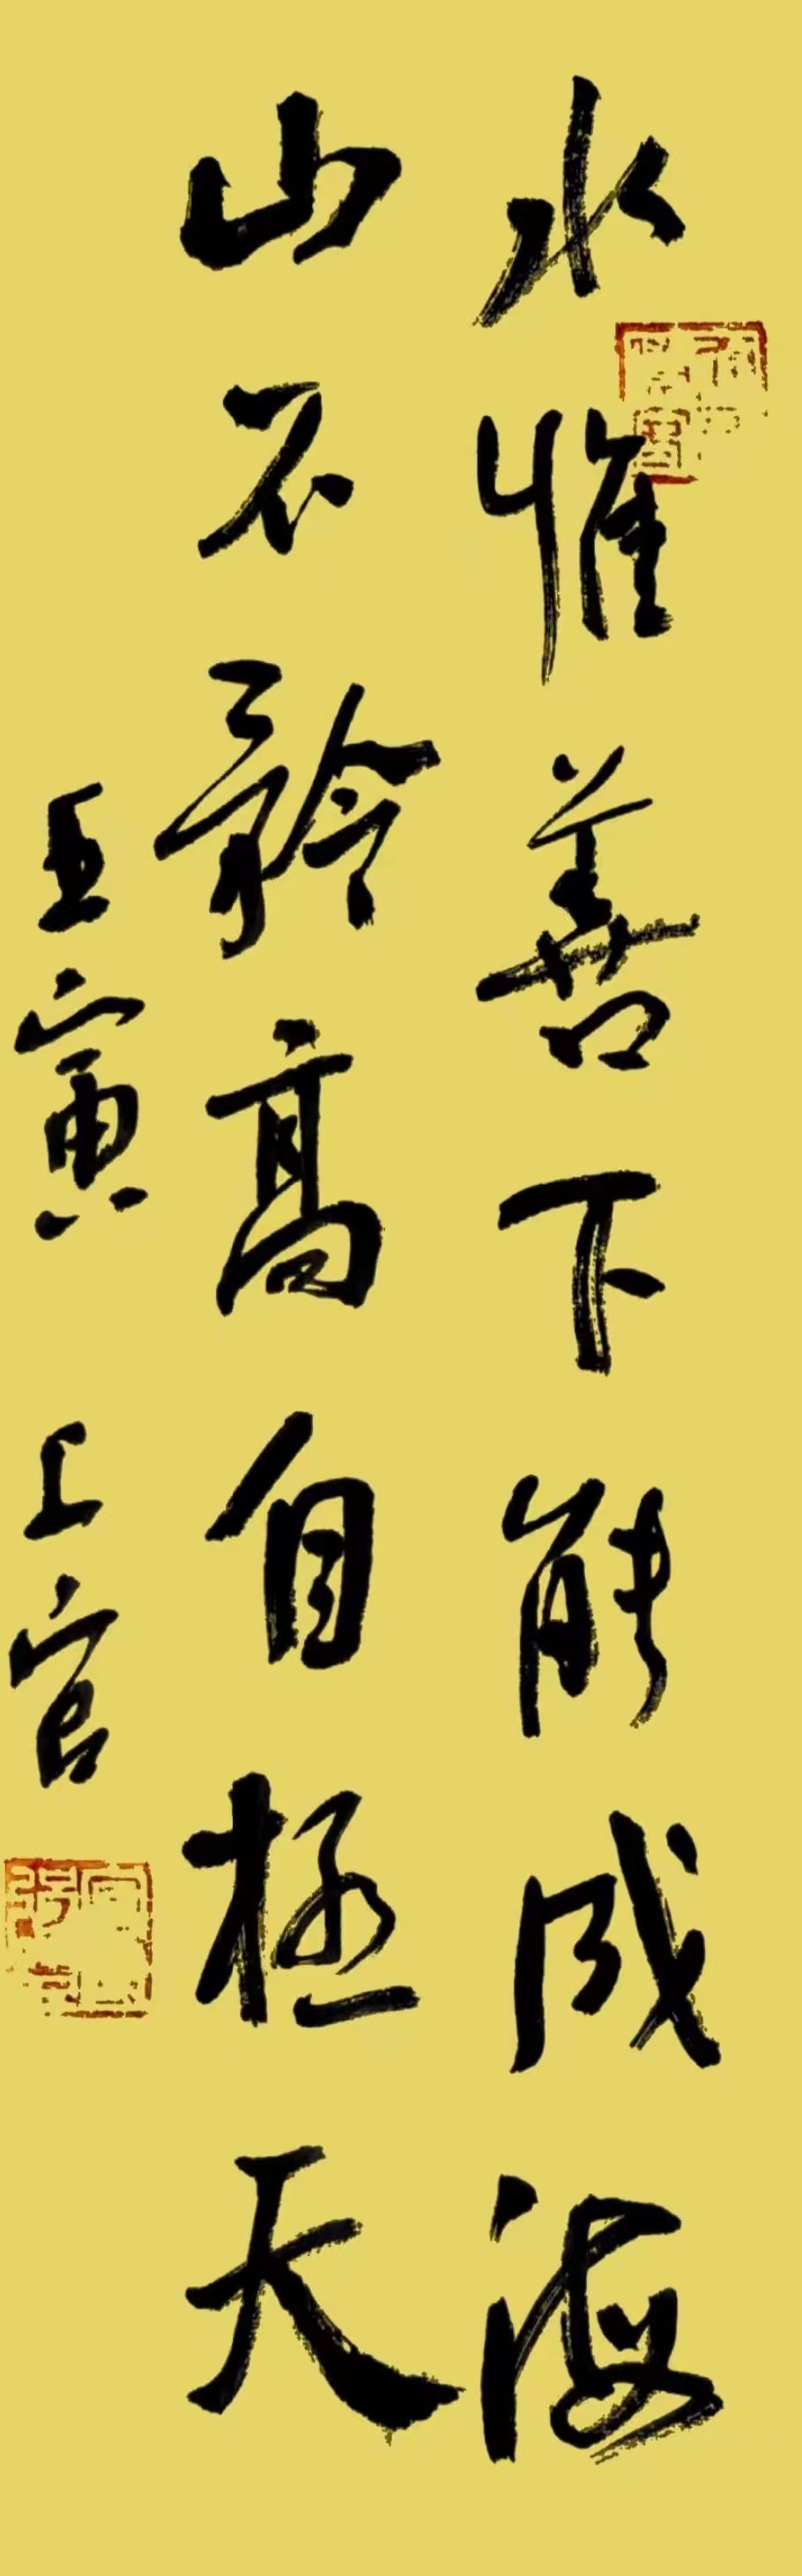 水惟善下能成海
山不矜高自极天
壬寅 上官